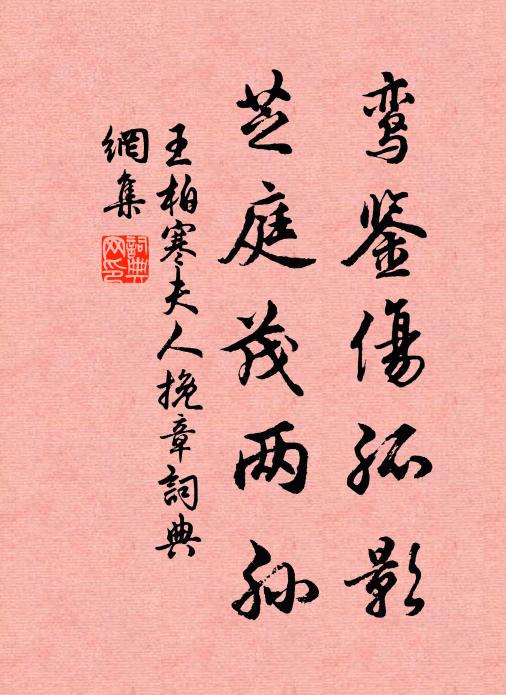 鸾鉴傷孤影
芝庭茂两孙
王柏寒夫人挽章詞典
網集
詞典网印